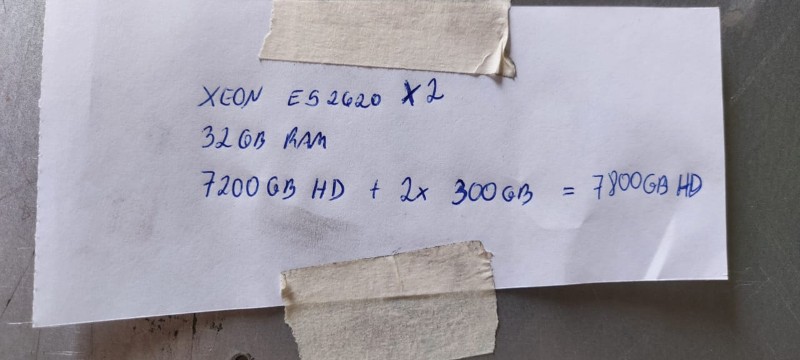 XEON E52620 X2
32GB RAM
7200GB HD + 2x 300GB = 7800GB HD